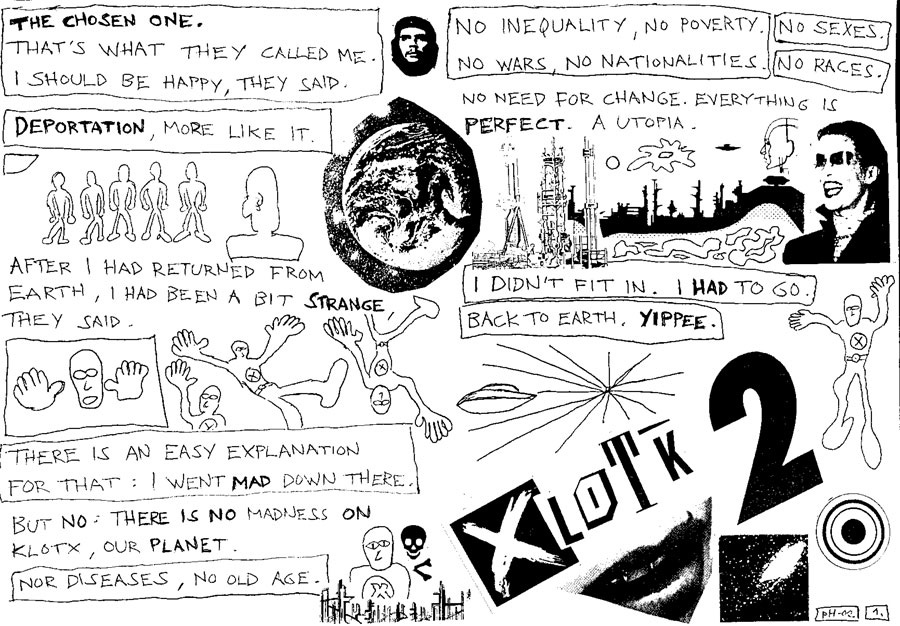 THE CHOSEN ONE.
THAT'S WHAT THEY CALLED ME.
I SHOULD BE HAPPY, THEY SAID.
DEPORTATION, MORE LIKE IT.
AFTER I HAD RETURNED FROM
EARTH, I HAD BEEN A BIT STRANGE
THEY SAID.
THERE IS AN EASY EXPLANATION
FOR THAT: I WENT MAD DOWN THERE.
BUT NO: THERE IS NO MADNESS ON
KLOTX, OUR PLANET.
NOR DISEASES, NO OLD AGE.
NO INEQUALITY, NO POVERTY.
NO SEXES.
NO WARS, NO NATIONALITIES.
NO RACES.
NO NEED FOR CHANGE. EVERYTHING IS
PERFECT. A UTOPIA.
I DIDN'T FIT IN. I HAD TO GO.
BACK TO EARTH. YIPPEE.
XLOTK 2
PH-02. 1.